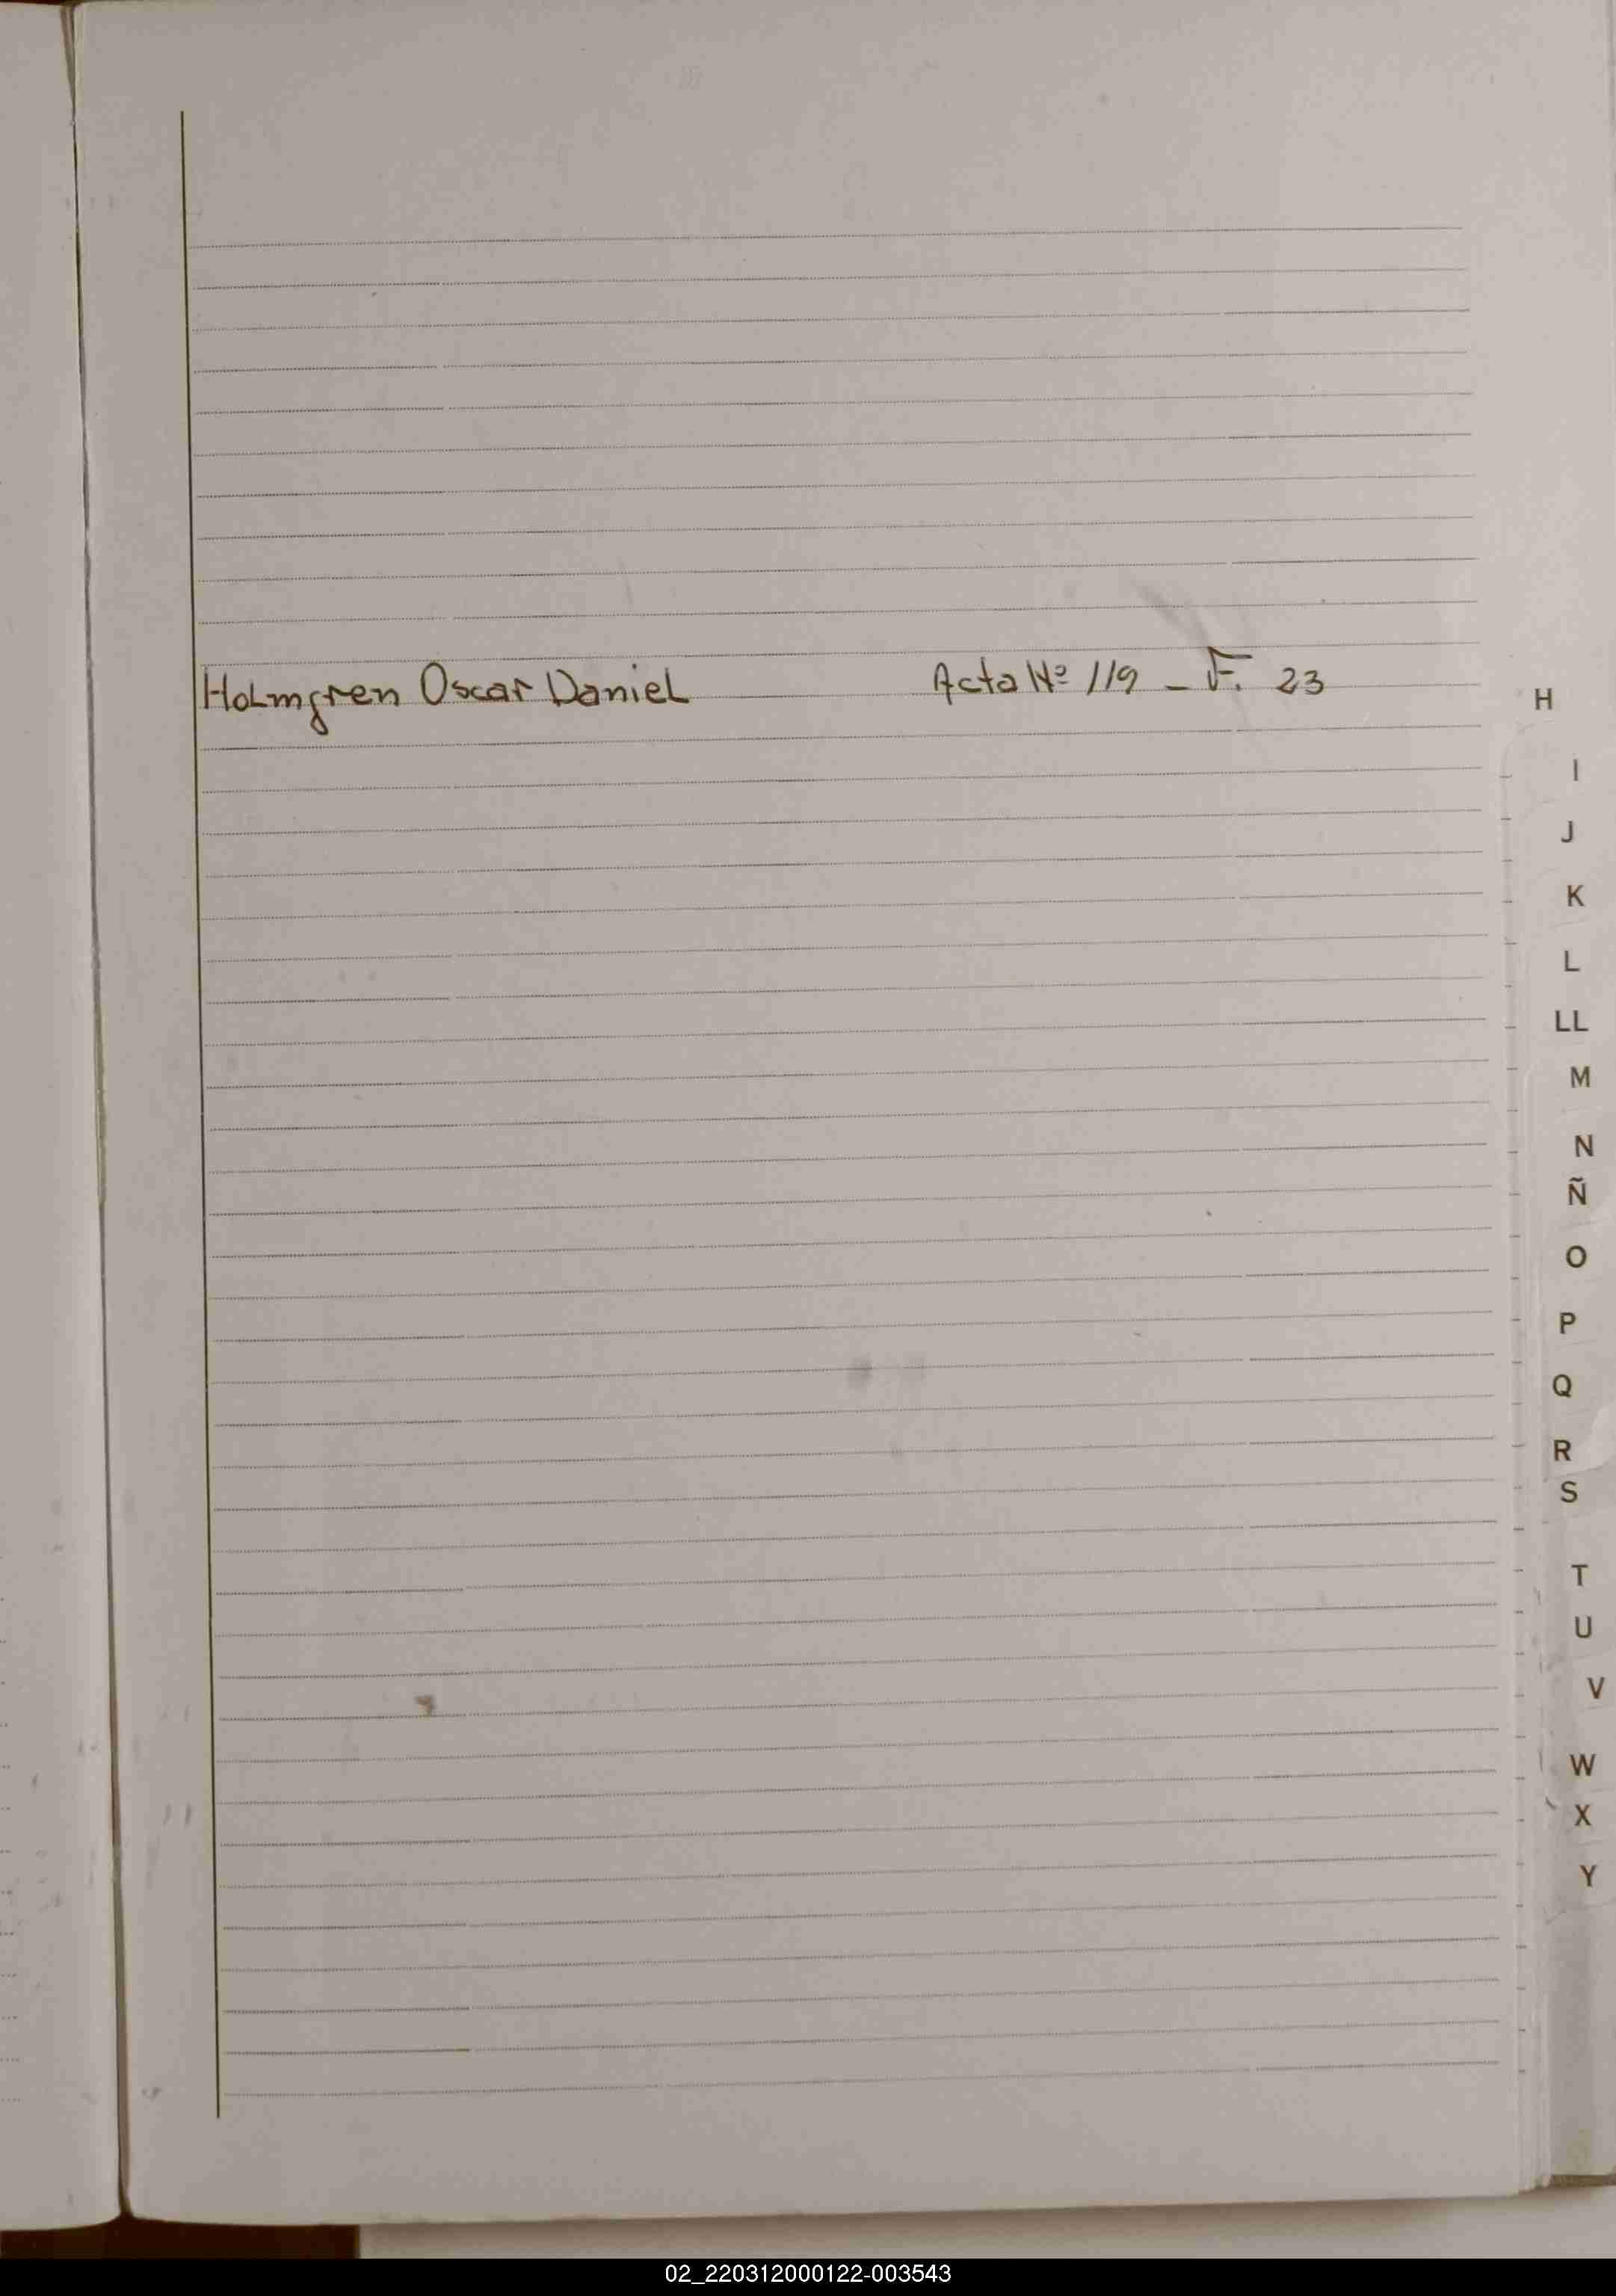 Holmgren Oscar Daniel Acta Nº 119 - F. 23
H
I
J
K
L
LL
M
N
Ñ
O
P
Q
R
S
T
U
V
W
X
Y
02_220312000122-003543